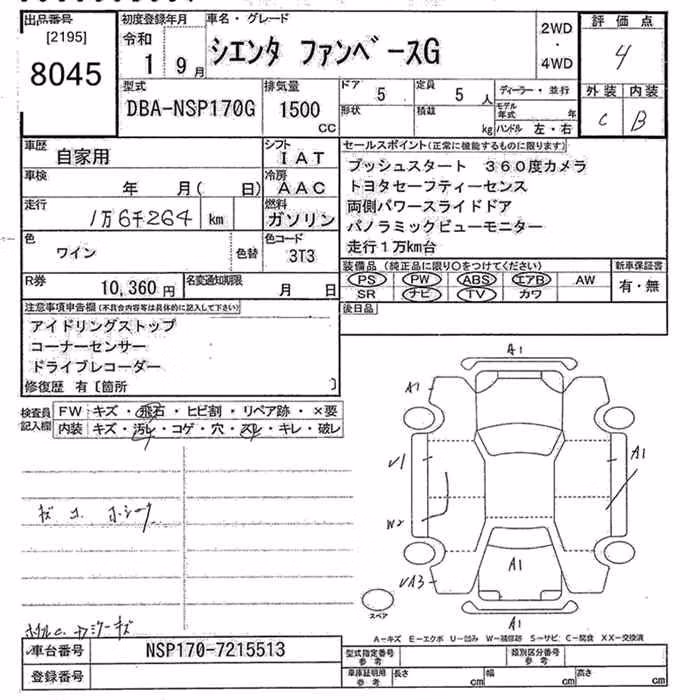 出品番号
[2195]
8045
初度登録年月
令和
1 9月
車名・グレード
シエンタ ファンベースG
2WD
・
4WD
評価点
4
外装 内装
C B
型式
DBA-NSP170G
排気量
1500
CC
ドア
5
定員
5 人
形状
積載
kg
ディーラー・並行
モデル年式 年
ハンドル 左・右
車歴
自家用
シフト
IAT
車検
年 月( 日)
冷房
AAC
走行
1万6千264 km
燃料
ガソリン
色
ワイン
色替
色コード
3T3
R券
10,360円
名変通知期限
月 日
セールスポイント(正常に機能するものに限ります)
プッシュスタート 360度カメラ
トヨタセーフティーセンス
両側パワースライドドア
パノラミックビューモニター
走行1万km台
装備品(純正品に限り○をつけてください)
PS PW ABS エアB AW
SR ナビ TV カワ
新車保証書
有・無
後日品
注意事項申告欄(不具合内容等は具体的に記入して下さい)
アイドリングストップ
コーナーセンサー
ドライブレコーダー
修復歴 有〔箇所 〕
検査員
記入欄
FW キズ・飛石・ヒビ割・リペア跡・×要
内装 キズ・汚レ・コゲ・穴・スレ・キレ・破レ
A1
A1
√1
A1
W2
A1
√A3
A1
スペア
A−キズ E−エクボ U−凹み W−補修跡 S−サビ C−腐食 XX−交換済
車台番号
NSP170-7215513
登録番号
型式指定番号
参考
類別区分番号
参考
車庫証明用
参考
長さ cm
幅 cm
高さ cm